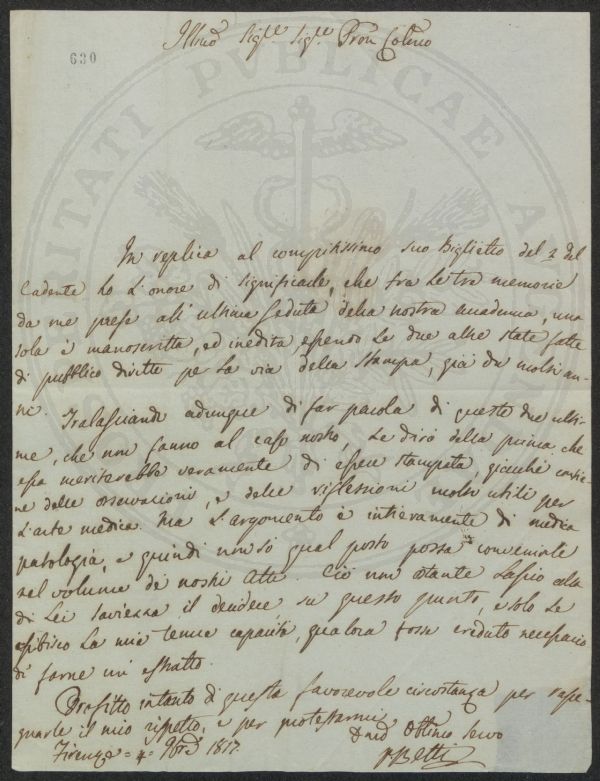 Illmo Sigre Sigre Pron Colmo
630
In replica al compitissimo suo Biglietto del 2 del
Cadente ho l'onore di significarle, che fra le tre memorie
da me prese all'ultima Seduta della nostra accademia, una
sola è manoscritta, ed inedita essendo le due altre state fatte
di pubblico diritto per la via della Stampa, già da molti an-
ni. Tralasciando adunque di far parola di queste due ulti-
me, che non fanno al caso nostro, Le dirò della prima che
essa meriterebbe veramente di essere stampata, giacchè contie-
ne delle osservazioni, e delle riflessioni molto utili per
l'arte medica. Ma l'argomento è intieramente di medica
patologia, e quindi non so qual posto possa convenirle
nel volume de nostri Atti. Ciò non ostante lascio alla
di Lei saviezza il decidere su questo punto, e solo Le
esibisco la mia tenue capacità, qualora fosse creduto necessario
di farne un estratto.
Profitto intanto di questa favorevole circostanza per rasse-
gnarle il mio rispetto, e per protestarmi
Firenze = 4 = 9bre 1817.
Obblmo Servo
PBetti